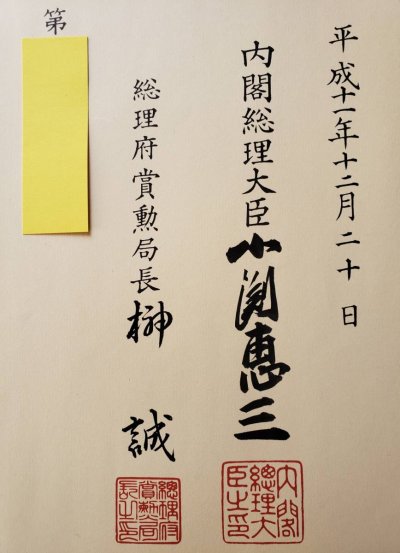 平成十一年十二月二十日
内閣総理大臣小渕恵三
内閣總理大臣之印
総理府賞勲局長榊誠
總理府賞勳局長之印
第